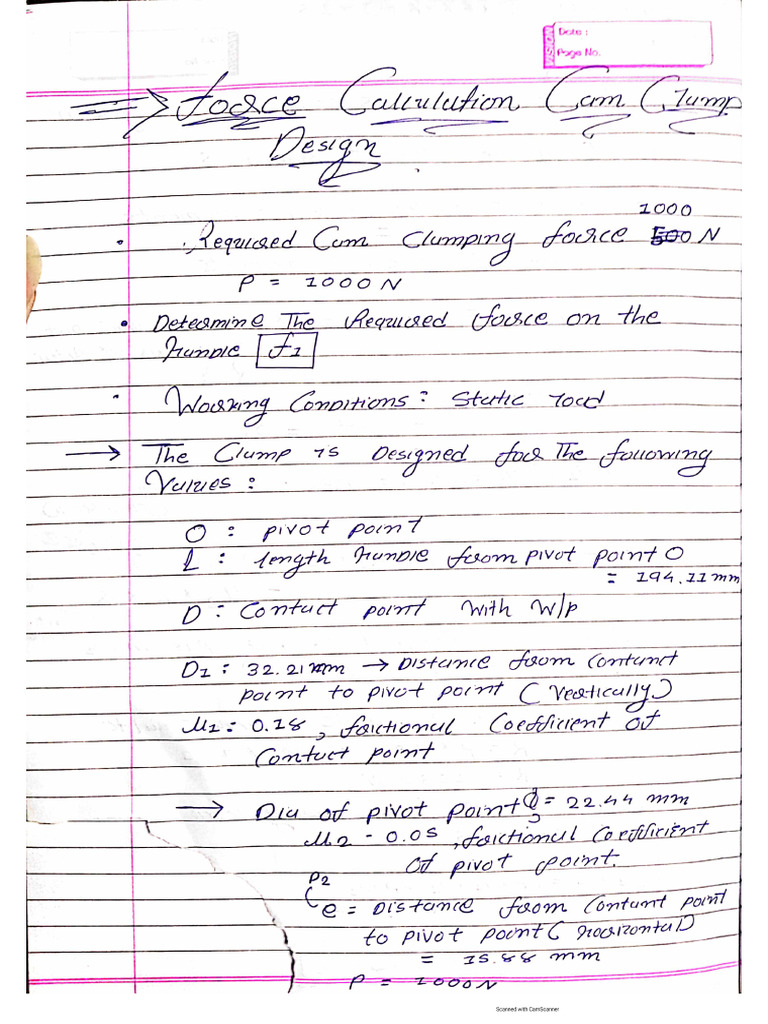 Date :
Page No.
VISION
⇒ Force Calculation Cam Clamp
Design
1000
• Required Cam Clamping force 500 N
P = 1000 N
• Determine The Required force on the
Handle f1
• Working Conditions : Static load
→ The Clamp is Designed for The following
Values :
O : pivot point
l : length Handle from pivot point O
= 194.11 mm
D : Contact point with W/p
D1 : 32.21 mm → Distance from Contact
point to pivot point ( Vertically )
μ1 : 0.18 , frictional Coefficient of
Contact point
→ Dia of pivot point = 22.44 mm
μ2 - 0.05 , frictional Coefficient
of pivot point.
P2
e = Distance from Contant point
to pivot point ( horizontal )
= 15.88 mm
P = 1000 N
Scanned with CamScanner